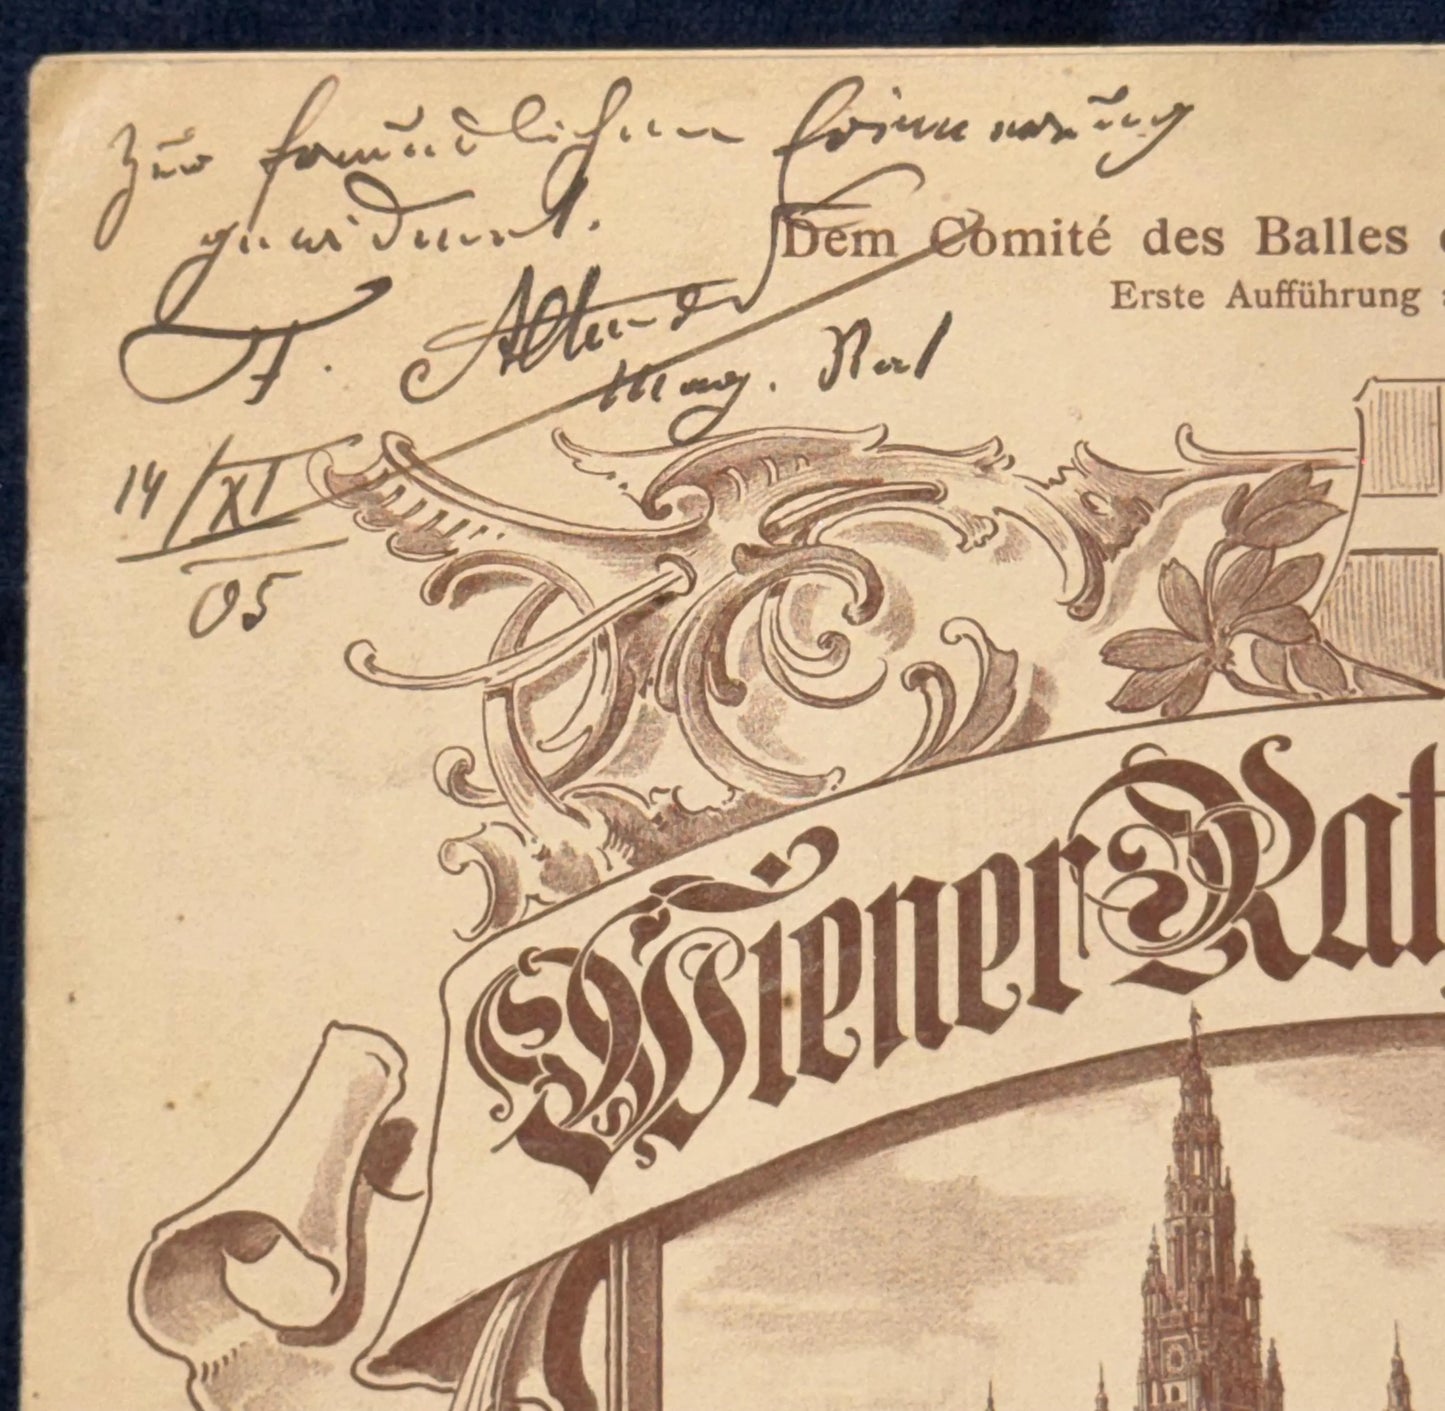 Zur freundlichen Erinnerung
gewidmet.
F.
Mag. Rat
14/XI
05
Dem Comité des Balles
Erste Aufführung
Wiener Rat